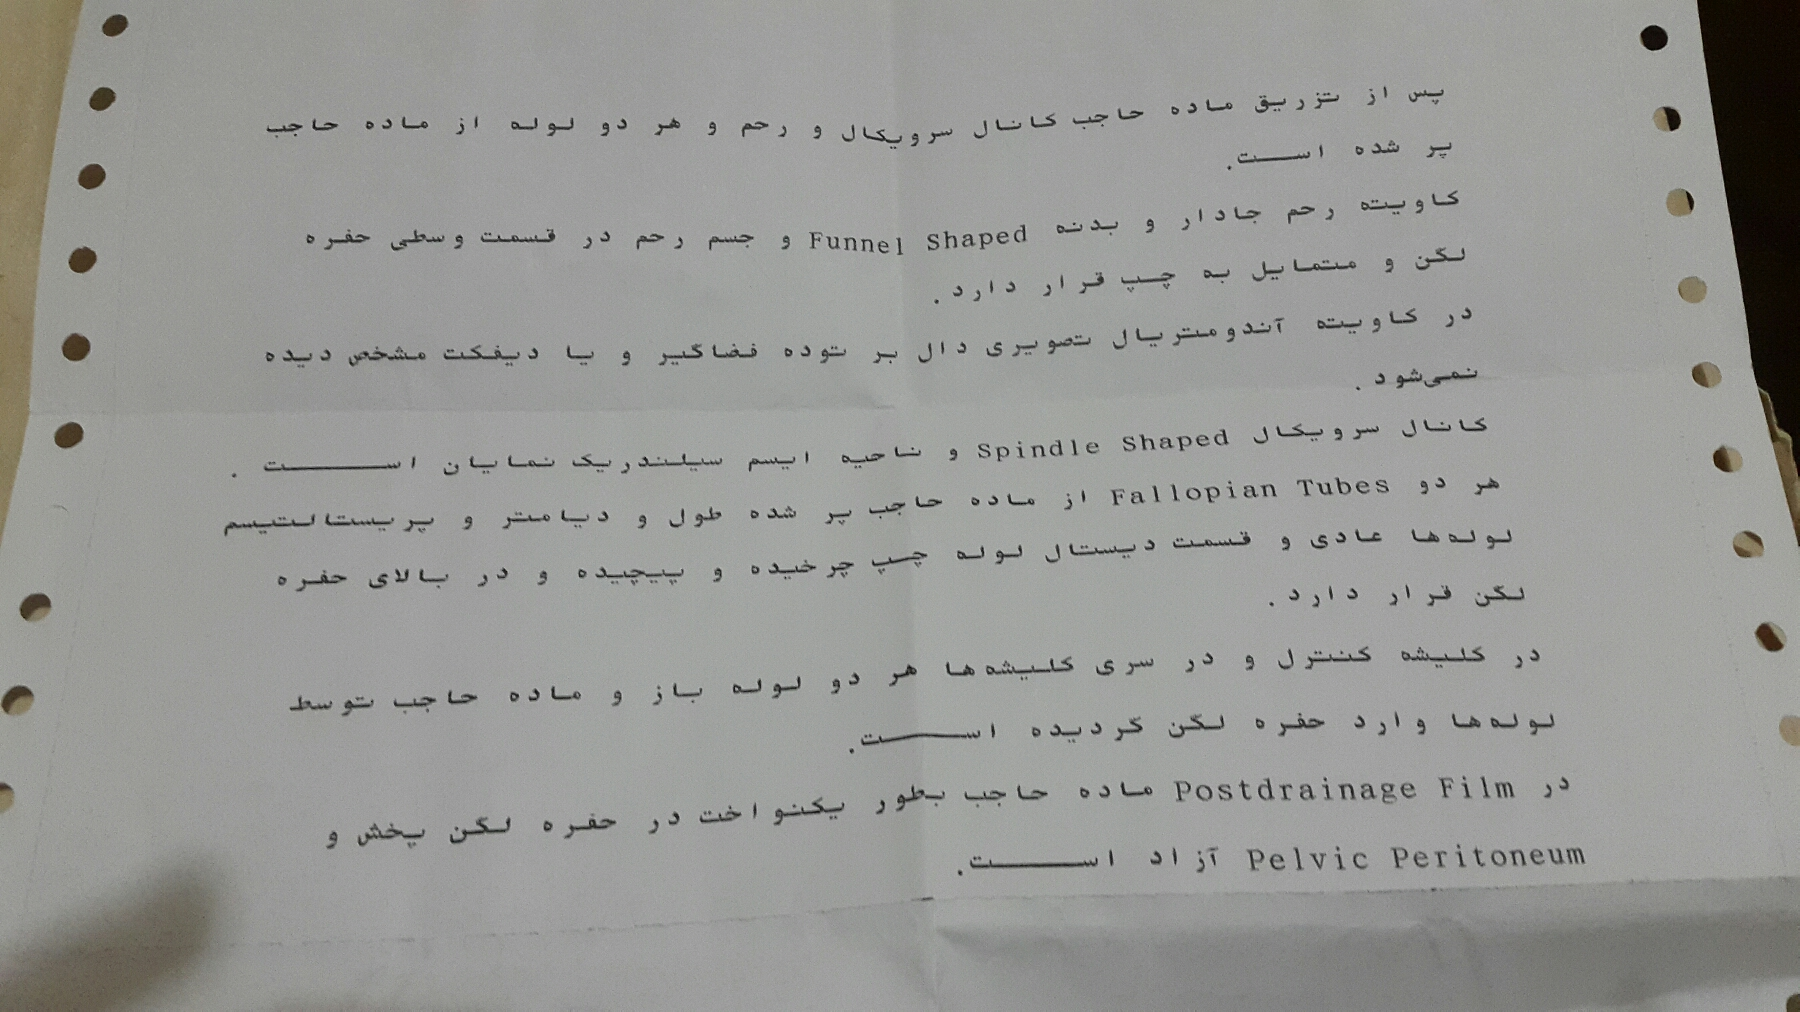 پس از تزریق ماده حاجب کانال سرویکال و رحم و هر دو لوله از ماده حاجب
پر شده است.
کاویته رحم جادار و بدنه Funnel Shaped و جسم رحم در قسمت وسطی حفره
لگن و متمایل به چپ قرار دارد.
در کاویته آندومتریال تصویری دال بر توده فضاگیر و یا دیفکت مشخص دیده
نمی‌شود.
کانال سرویکال Spindle Shaped و ناحیه ایسم سیلندریک نمایان است.
هر دو Fallopian Tubes از ماده حاجب پر شده طول و دیامتر و پریستالتیسم
لوله‌ها عادی و قسمت دیستال لوله چپ چرخیده و پیچیده و در بالای حفره
لگن قرار دارد.
در کلیشه کنترل و در سری کلیشه‌ها هر دو لوله باز و ماده حاجب توسط
لوله‌ها وارد حفره لگن گردیده است.
در Postdrainage Film ماده حاجب بطور یکنواخت در حفره لگن پخش و
Pelvic Peritoneum آزاد است.